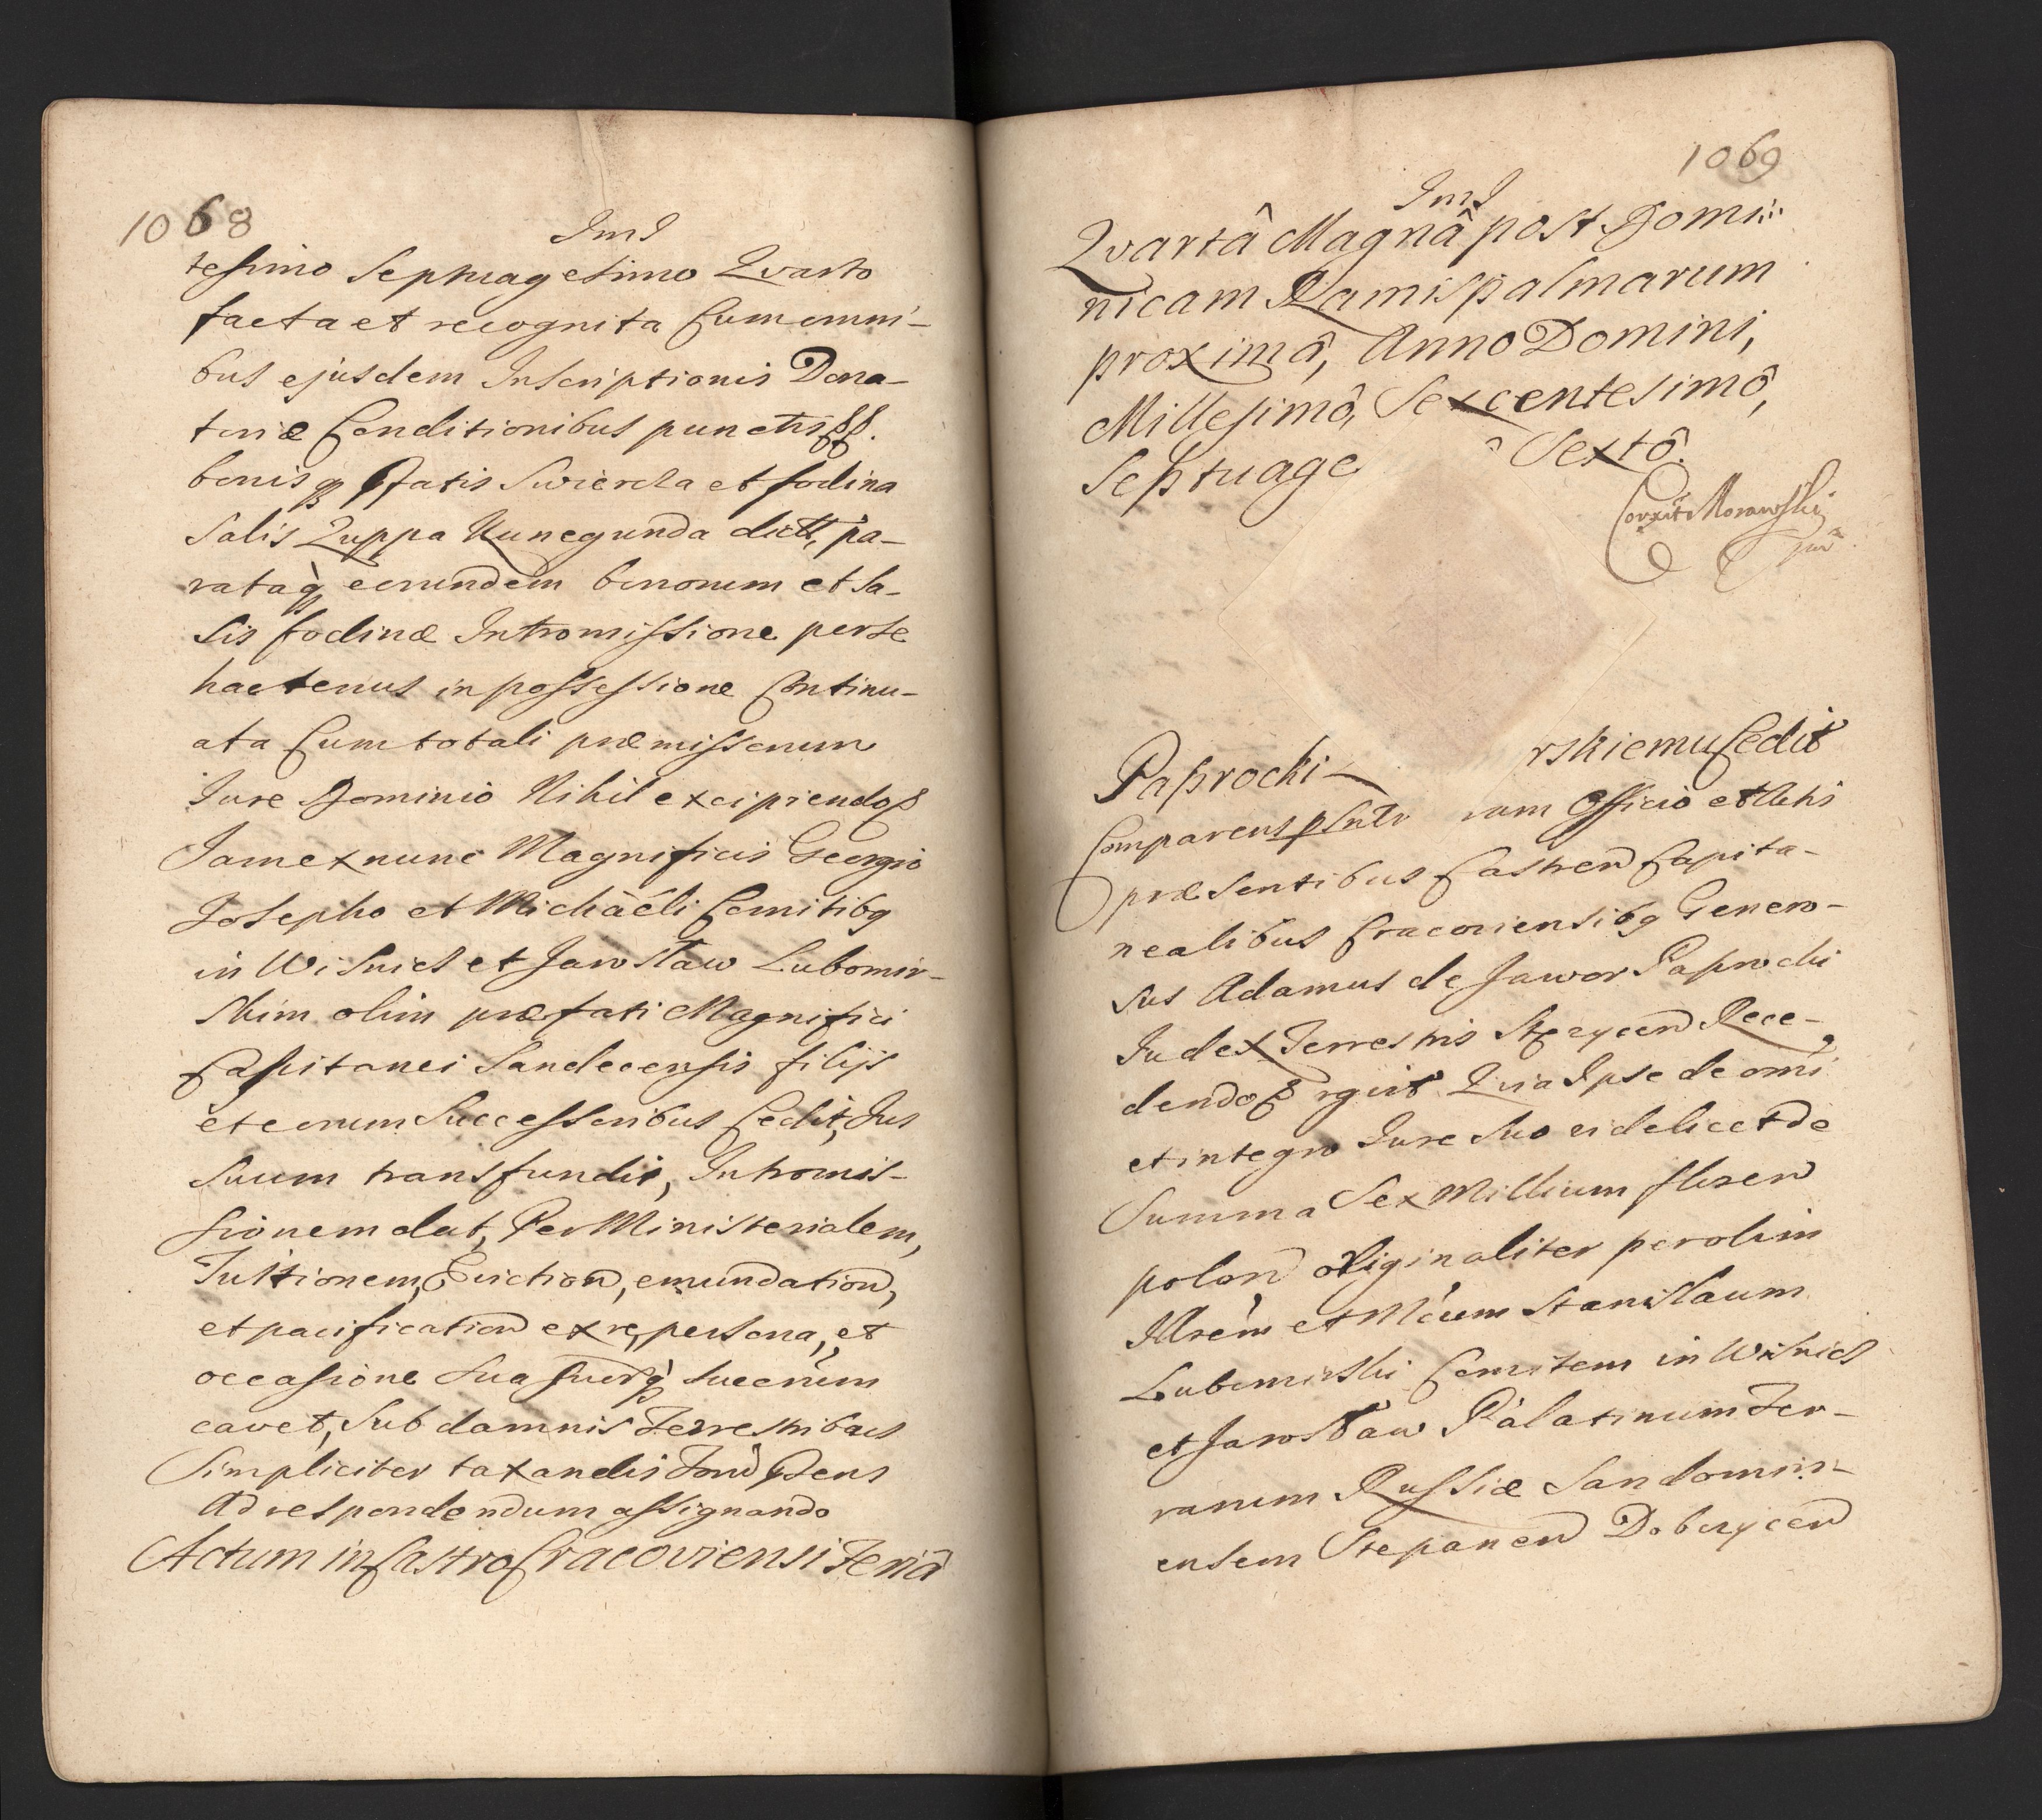 1068
JmJ
tesimo Septuagesimo Qvarto
facta et recognita Cum omni-
bus ejusdem Inscriptionis Dona-
toriæ Conditionibus punctis
bonisq pfatis Swiercza et fodina
Salis Zuppa Kunegunda dict, pa-
rataq eorundem bonorum et Sa-
lis fodinæ Intromissione per se
hactenus in possessione Continu-
ata Cum totali præmissorum
Jure Dominio Nihil excipiendo
Jam ex nunc Magnificis Georgio
Josepho et Michaeli Comitibq
in Wisnicz et Jarosław Lubomir-
skim olim præfati Magnifici
Capitanei Sandecensis filijs
et eorum Successoribus Cedit, Jus
Suum transfundit, Intromis-
sionem dat, Per Ministerialem,
Tuitionem, Eviction, emundation,
et pacification ex re, persona, et
occasione sua suorq succrum
cavet, Sub damnis Terrestribus
Simpliciter taxandis
Ad respondendum assignando
Actum in Castro Cracoviensi Feriâ
1069
JmJ
Qvartâ Magnâ post Domi-
nicam Ramispalmarum
proximâ, Anno Domini,
Millesimô, Sexcentesimô,
Septuage Sextô.
Corrit Morawski
Paprocki rskiemu Cedit
Comparens psntr rum Officio et Actis
præsentibus Castren Capita-
nealibus Cracoviensibq Genero-
sus Adamus de Jawor Paprocki
Judex Terrestris Strzycen Rece-
dendo rgvit Quia Ipse de omi
et integro Jure suo videlicet de
Summa Sex Millium floren
polon originaliter per olim
Illrem et Mcum Stanislaum
Lubomirski Comitem in Wisnicz
et Jarosław Palatinum Ter-
rarum Russiæ Sandomiri-
ensem Stepanen Dobczycen